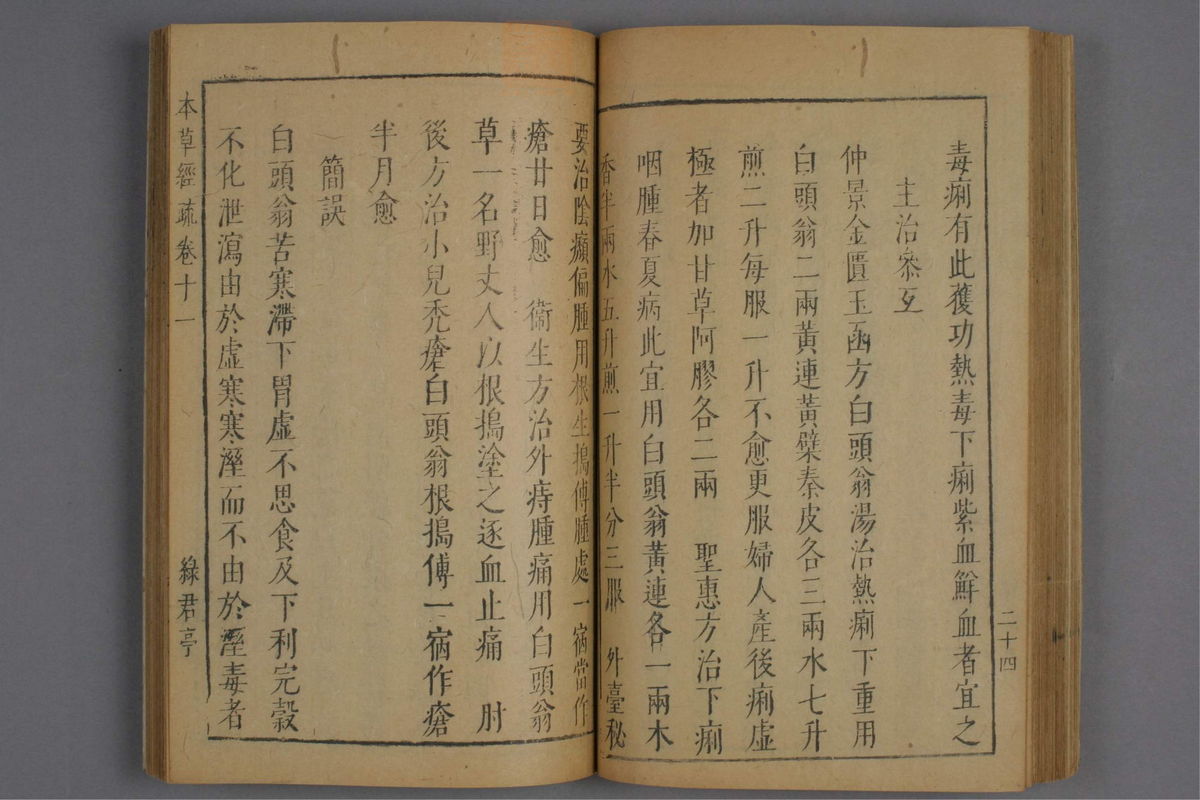 毒痢有此獲功熱毒下痢紫血鮮血者宜之
主治叅互
仲景金匱玉函方白頭翁湯治熱痢下重用
白頭翁二兩黃連黃檗秦皮各三兩水七升
煎二升每服一升不愈更服婦人產後痢虛
極者加甘草阿膠各二兩　聖惠方治下痢
咽腫春夏病此宜用白頭翁黃連各一兩木
香半兩水五升煎一升半分三服　外臺秘
二十四
要治陰㿗偏腫用根生搗傅腫處一宿當作
瘡廿日愈　衞生方治外痔腫痛用白頭翁
草一名野丈人以根搗塗之逐血止痛　肘
後方治小兒禿瘡白頭翁根搗傅一宿作瘡
半月愈
簡誤
白頭翁苦寒滯下胃虛不思食及下利完穀
不化泄瀉由於虛寒寒溼而不由於溼毒者
本草經疏卷十一　綠君亭